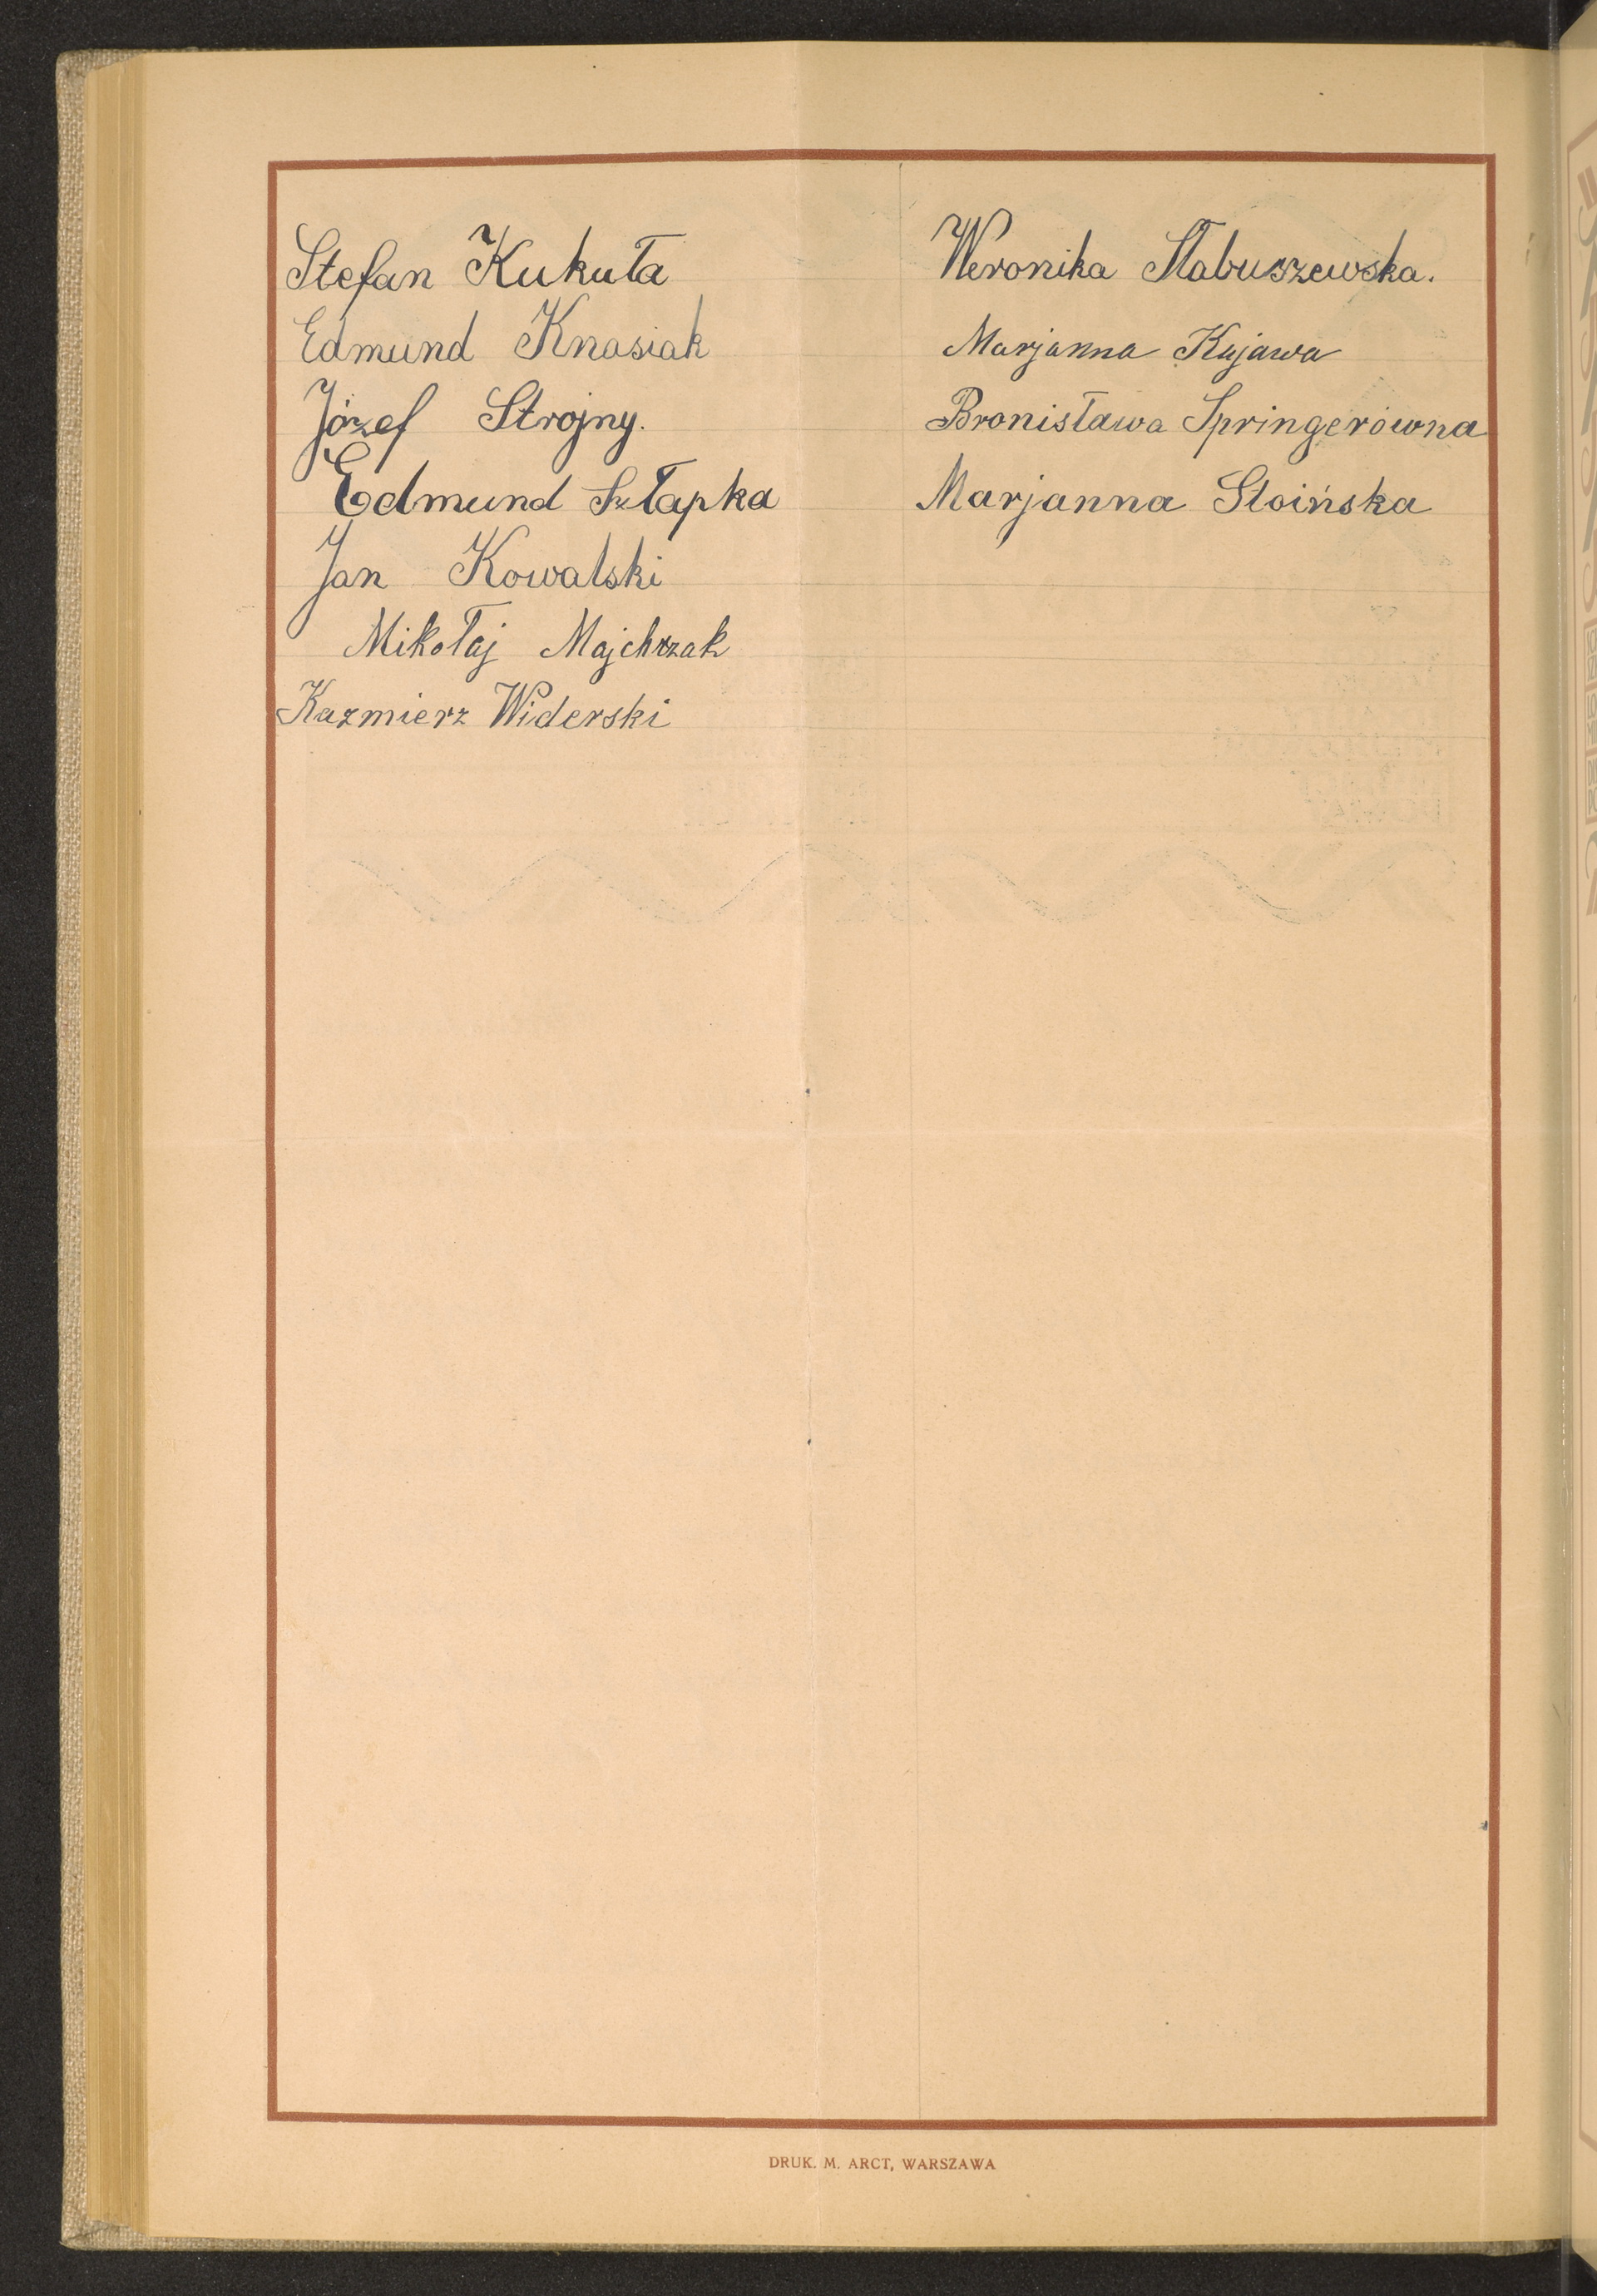 Stefan Kukuła
Edmund Knasiak
Józef Strojny.
Edmund Szłapka
Jan Kowalski
Mikołaj Majchrzak
Kazmierz Widerski
Weronika Słabuszewska.
Marjanna Kujawa
Bronisława Springerówna
Marjanna Stoińska
DRUK. M. ARCT, WARSZAWA